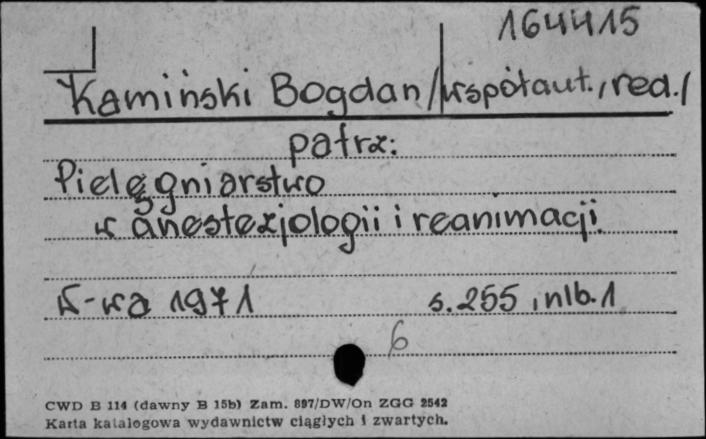 164415
Kamiński Bogdan /współaut., red./
patrz:
Pielęgniarstwo
w anestezjologii i reanimacji.
W-wa 1971 s. 255, nlb. 1
6
CWD B 114 (dawny B 15b) Zam. 897/DW/On ZGG 2542
Karta katalogowa wydawnictw ciągłych i zwartych.